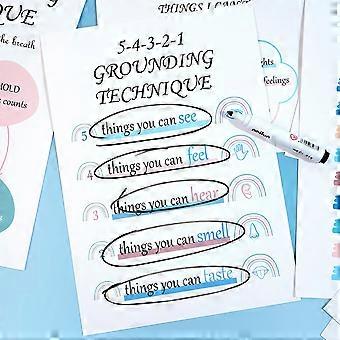 QUE
the breath
HOLD
counts
THINGS I CAN'T
5-4-3-2-1
GROUNDING
TECHNIQUE
5 things you can see
4 things you can feel
3 things you can hear
2 things you can smell
things you can taste
feelings